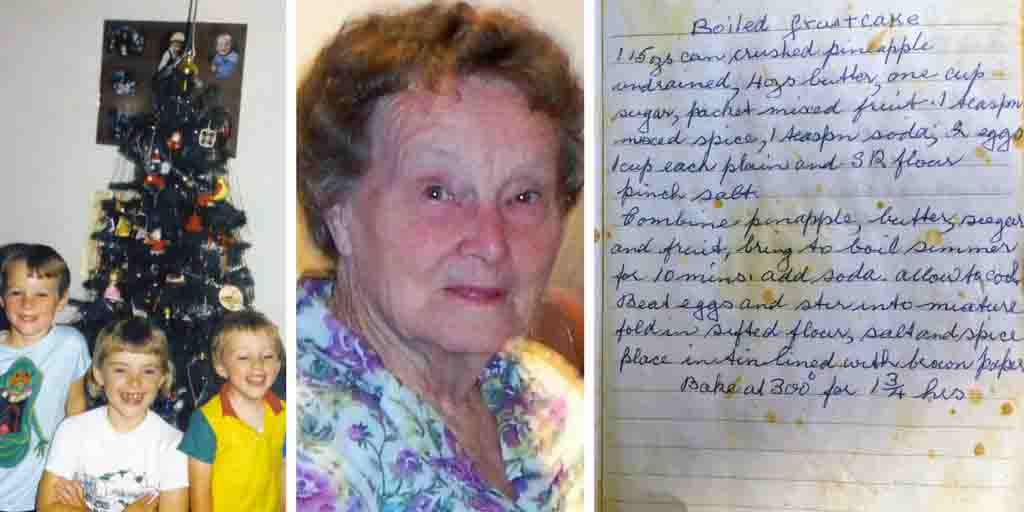 Boiled fruitcake
1 15ozs can crushed pineapple
undrained, 4ozs butter, one cup
sugar, packet mixed fruit. 1 teaspn
mixed spice, 1 teaspn soda, 2 eggs
1 cup each plain and S R flour
pinch salt.
Combine pineapple, butter, sugar
and fruit, bring to boil simmer
for 10 mins. add soda. allow to cool
Beat eggs and stir into mixture
fold in sifted flour, salt and spice
Place in tin lined with brown paper
Bake at 300° for 1 3/4 hrs